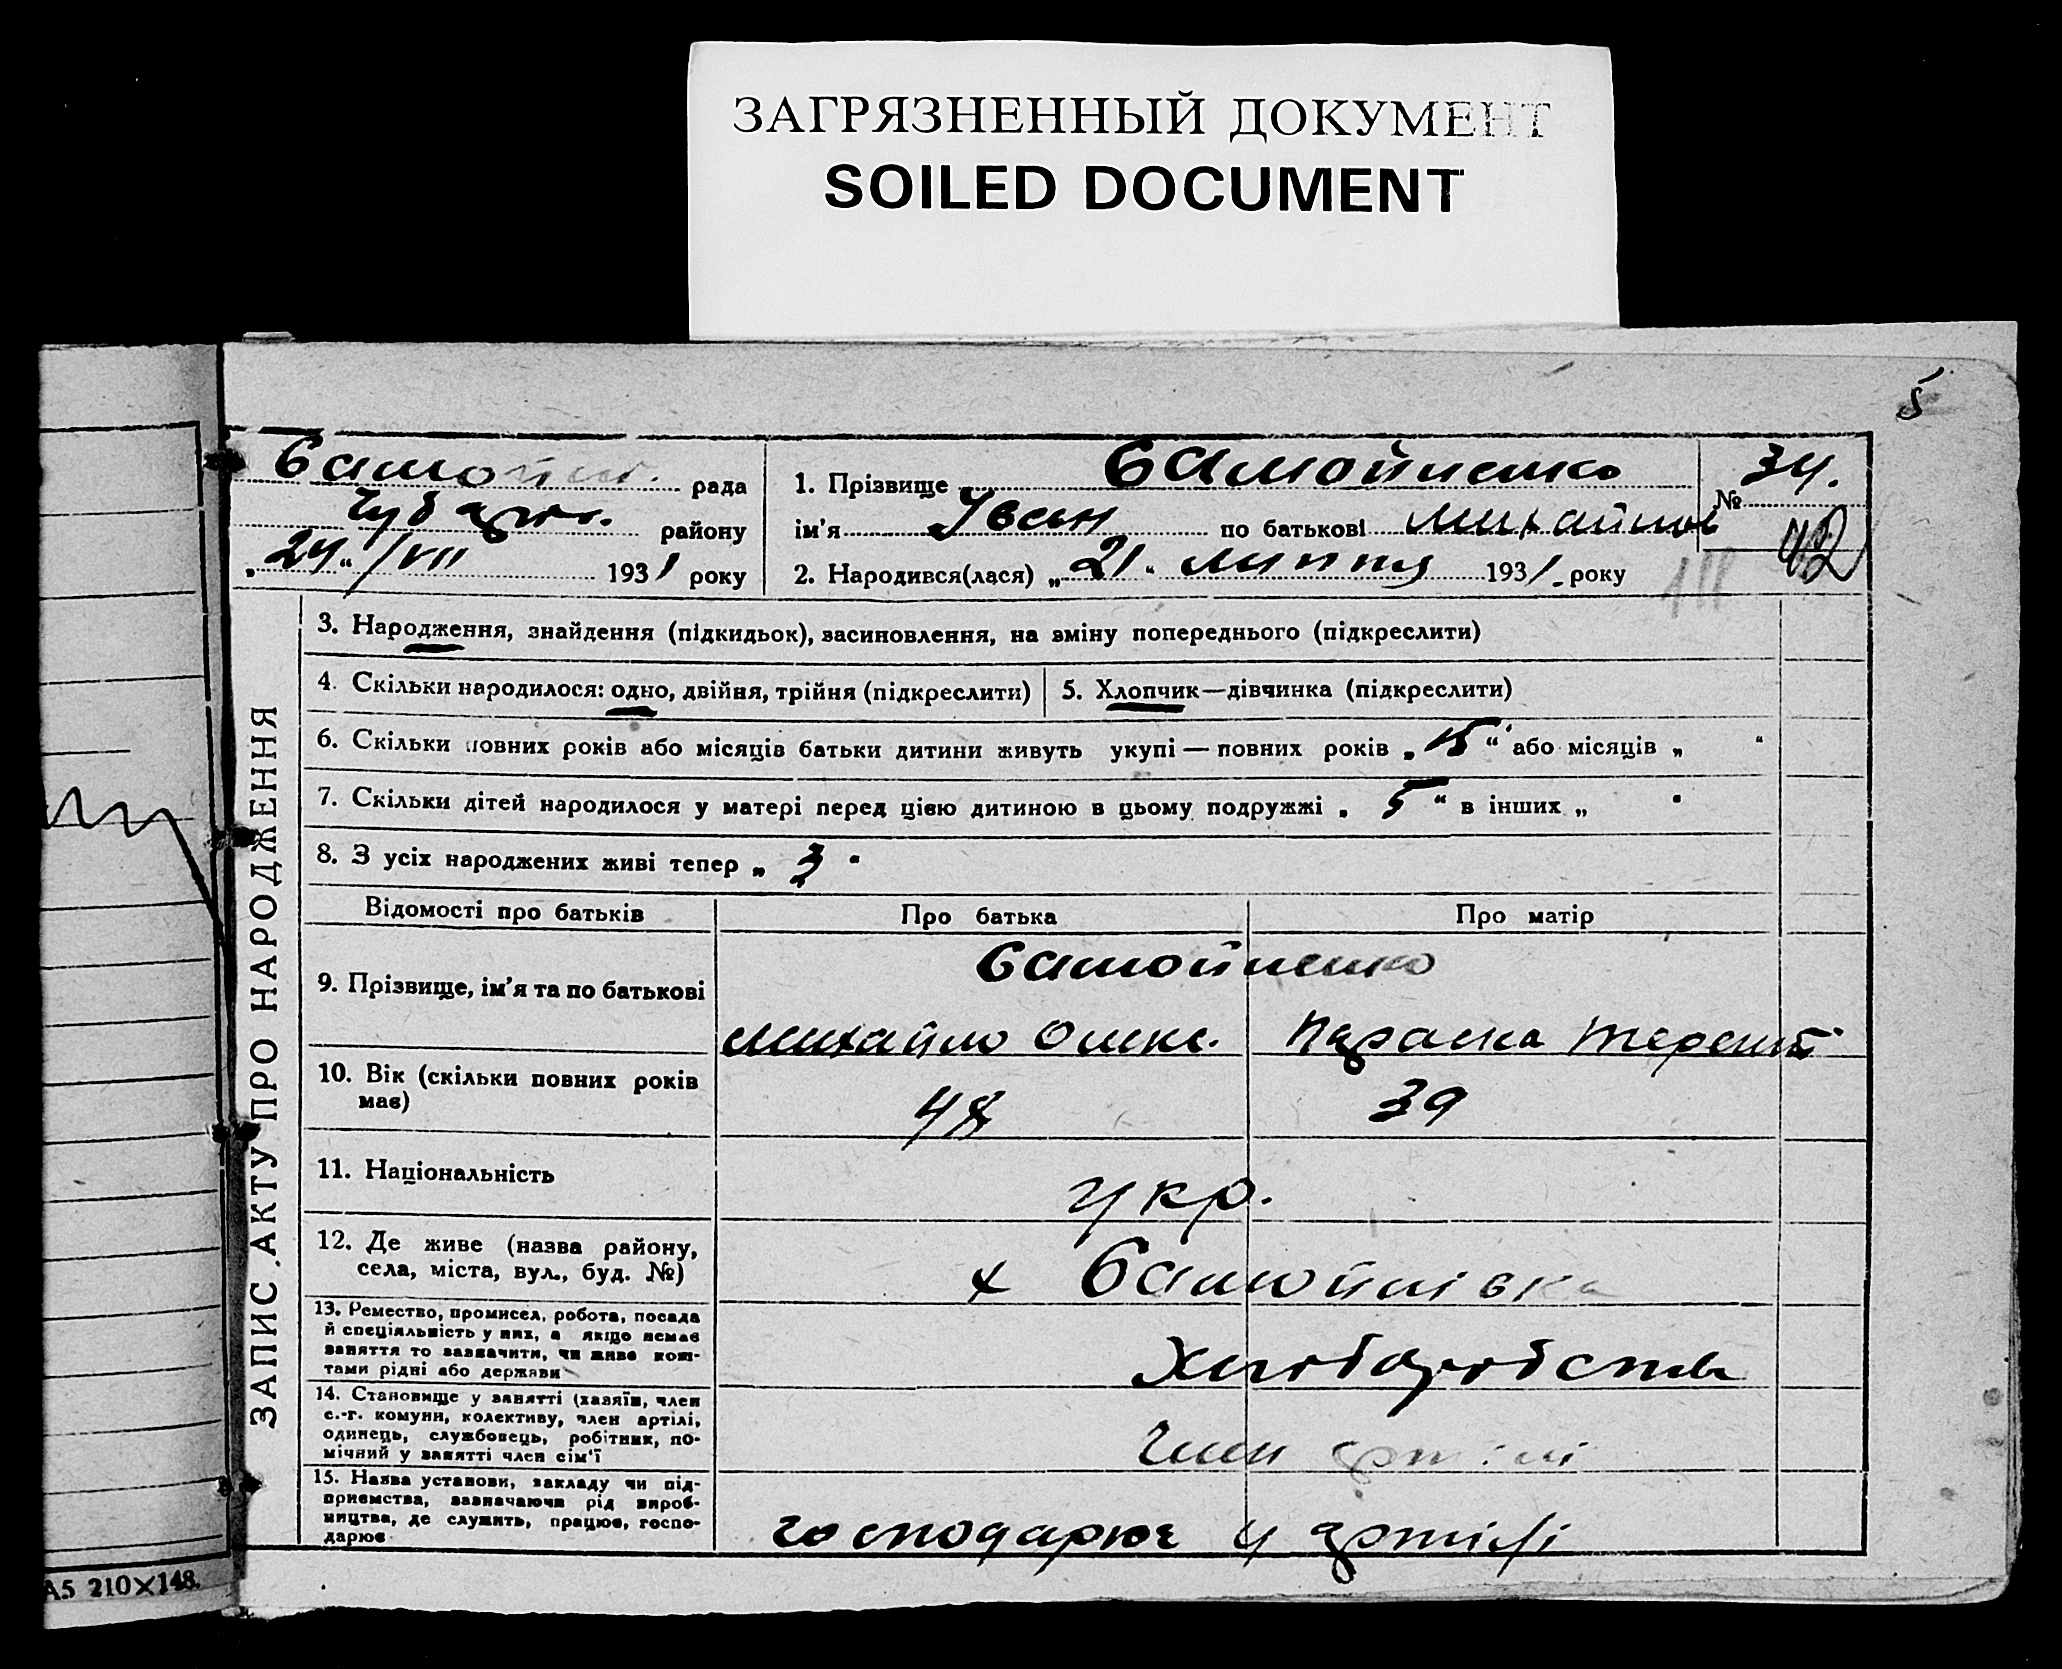 ЗАГРЯЗНЕННЫЙ ДОКУМЕНТ
SOILED DOCUMENT
5
Самойл. рада
Чубарів. району
„24“/VII 1931 року
1. Прізвище Самойленко
ім’я Іван по батькові Михайлов
2. Народився(лася) „21“ липня 1931. року
№ 34.
42
ЗАПИС АКТУ ПРО НАРОДЖЕННЯ
3. Народження, знайдення (підкидьок), засиновлення, на зміну попереднього (підкреслити)
4. Скільки народилося: одно, двійня, трійня (підкреслити)
5. Хлопчик—дівчинка (підкреслити)
6. Скільки повних років або місяців батьки дитини живуть укупі — повних років „15“ або місяців „ “
7. Скільки дітей народилося у матері перед цією дитиною в цьому подружжі „5“ в інших „ “
8. З усіх народжених живі тепер „3“
Відомості про батьків Про батька Про матір
9. Прізвище, ім’я та по батькові
Самойленко
Михайло Олекс. Параска Терент.
10. Вік (скільки повних років
має)
48 39
11. Національність
укр.
12. Де живе (назва району,
села, міста, вул., буд. №)
х Самойлівка
13. Ремество, промисел, робота, посада
й спеціяльність у них, а якщо немає
заняття то зазначити, чи живе кош-
тами рідні або держави
Хліборобство
14. Становище у занятті (хазяїн, член
с.-г. комуни, колективу, член артілі,
одинець, службовець, робітник, по-
мічний у занятті член сім’ї
член артілі
15. Назва установи, закладу чи під-
приємства, зазначаючи рід вироб-
ництва, де служить, працює, госпо-
дарює
господарює у артілі
А5 210×148.